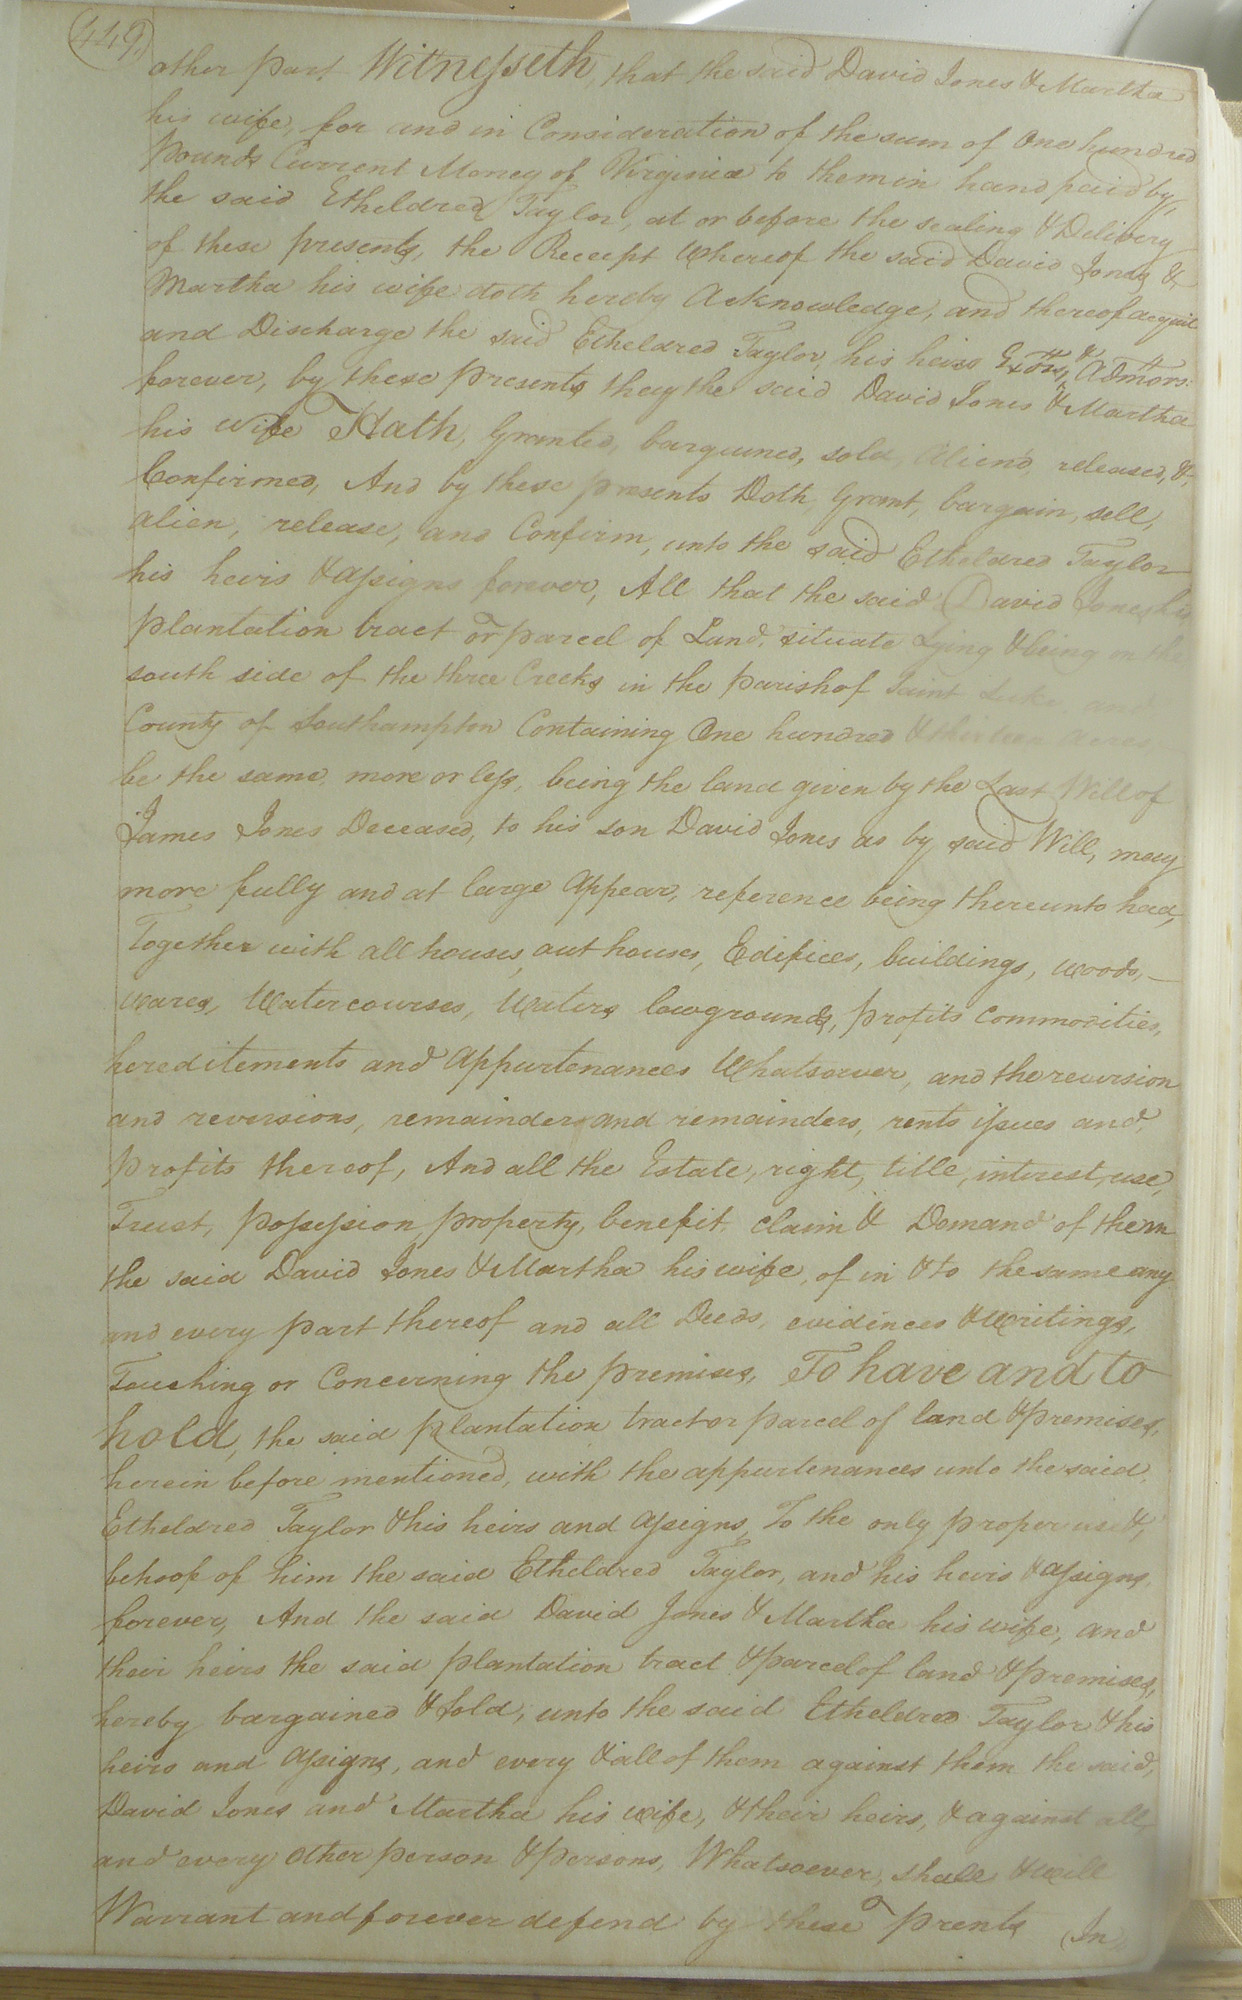 449
other part Witnesseth, that the said David Jones & Martha
his wife, for and in Consideration of the sum of One hundred
Pounds Current Money of Virginia to them in hand paid by,
the said Etheldred Taylor, at or before the sealing & Delivery
of these presents, the Receipt Whereof the said David Jones &
Martha his wife doth hereby Acknowledge, and thereof acquit
and Discharge the said Etheldred Taylor, his heirs Exōrs, & Admors:
forever, by these Presents they the said David Jones & Martha
his wife Hath, Granted, bargained, sold, Alien'd, released, &
Confirmed, And by these presents Doth, Grant, bargain, sell,
alien, release, and Confirm, unto the said Etheldred Taylor
his heirs & assigns forever, All that the said David Jones, his
plantation tract or parcel of Land, situate Lying & being on the
south side of the three Creeks in the parish of Saint Luke and
County of Southampton Containing One hundred & thirteen acres,
be the same, more or less, being the land given by the Last Will of
James Jones Deceased, to his son David Jones as by said Will, may
more fully and at large Appear, reference being thereunto had,
Together with all houses, out houses, Edifices, buildings, woods,
wares, Watercourses, Waters lowgrounds, profits Commodities,
hereditements and Appurtenances Whatsoever, and the reversion
and reversions, remainder and remainders, rents issues and,
Profits thereof, And all the Estate, right, title, interest, use,
Trust, possession, property, benefit, Claim & Demand of them
the said David Jones & Martha his wife, of in & to the same any
and every part thereof and all Deeds, evidences & Writings,
Touching or Concerning the premises, To have and to
hold, the said plantation tract or parcel of land & premises,
herein before mentioned, with the appurtenances unto the said,
Etheldred Taylor & his heirs and assigns, To the only proper use &,
behoof of him the said Etheldred Taylor, and his heirs & assigns,
forever, And the said David Jones & Martha his wife, and
their heirs the said plantation tract & parcel of land & premises,
hereby bargained & sold, unto the said Etheldred Taylor & his
heirs and assigns, and every & all of them against them the said,
David Jones and Martha his wife, & their heirs, & against all,
and every other person & persons, Whatsoever, shall & will
Warrant and forever defend by these prents In